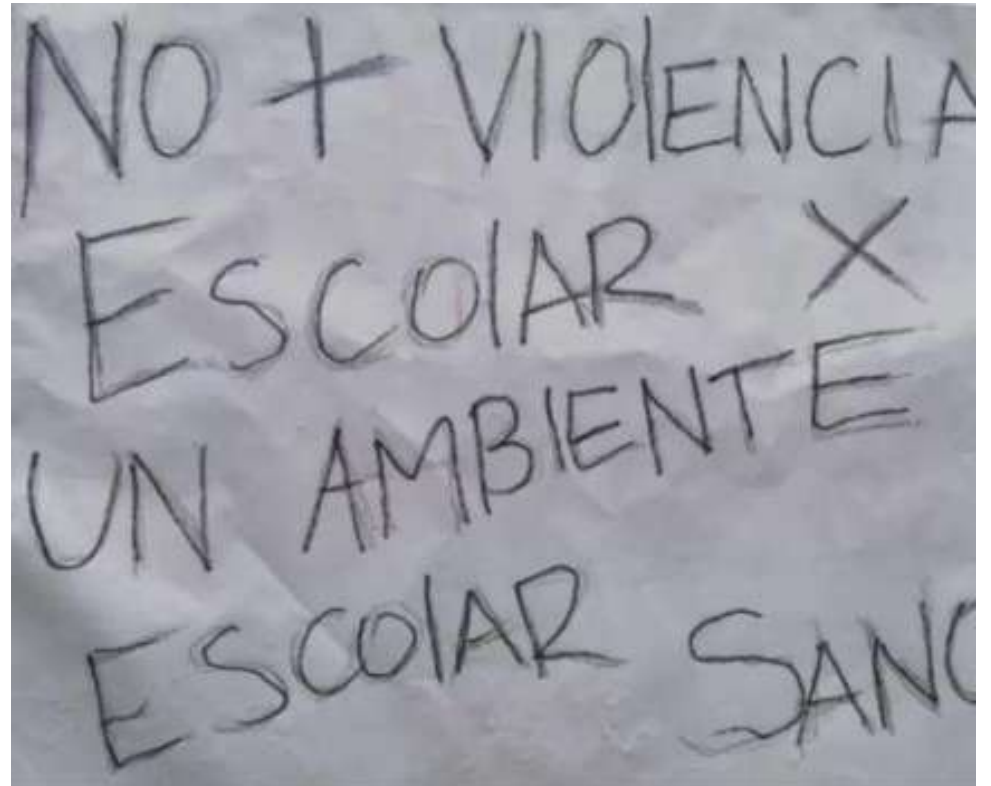 NO + VIOlENCIA
ESCOlAR X
UN AMBIENTE
ESCOlAR SANO